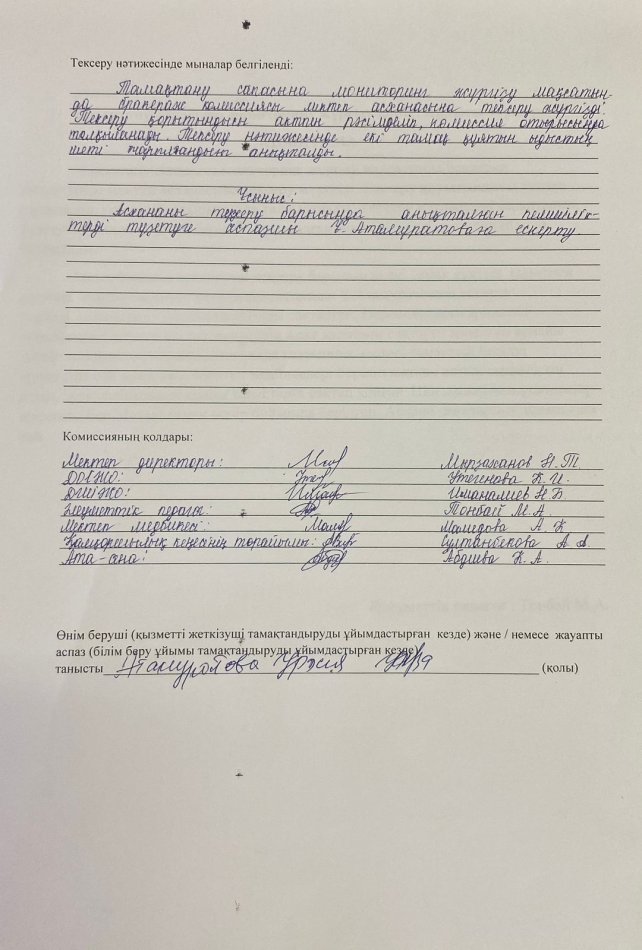 Тексеру нәтижесінде мыналар белгіленді:
Тамақтану сапасына мониторинг жүргізу мақсатын-
да бракераж комиссиясы мектеп асханасына тексеру жүргізді.
Тексеру қорытындысын актпен рәсімделіп, комиссия отырысында
талқыланады. Тексеру нәтижесінде екі тамақ құятын ыдыстың
шеті жарылғандығы анықталды.
Ұсыныс:
Асхананы тексеру барысында анықталған кемшілік-
терді түзетуге аспазшы Ұ. Атамуратоваға ескерту.
Комиссияның қолдары:
Мектеп директоры: Мырзажанов Н.Т.
ДОІЖО: Утегенова К.И.
ДШІЖО: Иманалиев Н.Б
Әлеуметтік педагог: Тонбай М.А.
Мектеп медбикесі: Мамедова А.К
Қамқоршылық кеңесінің төрайымы: Султанбекова А.А.
Ата-ана: Абдиева К.А.
Өнім беруші (қызметті жеткізуші тамақтандыруды ұйымдастырған кезде) және / немесе жауапты
аспаз (білім беру ұйымы тамақтандыруды ұйымдастырған кезде)
танысты Атамуратова (қолы)